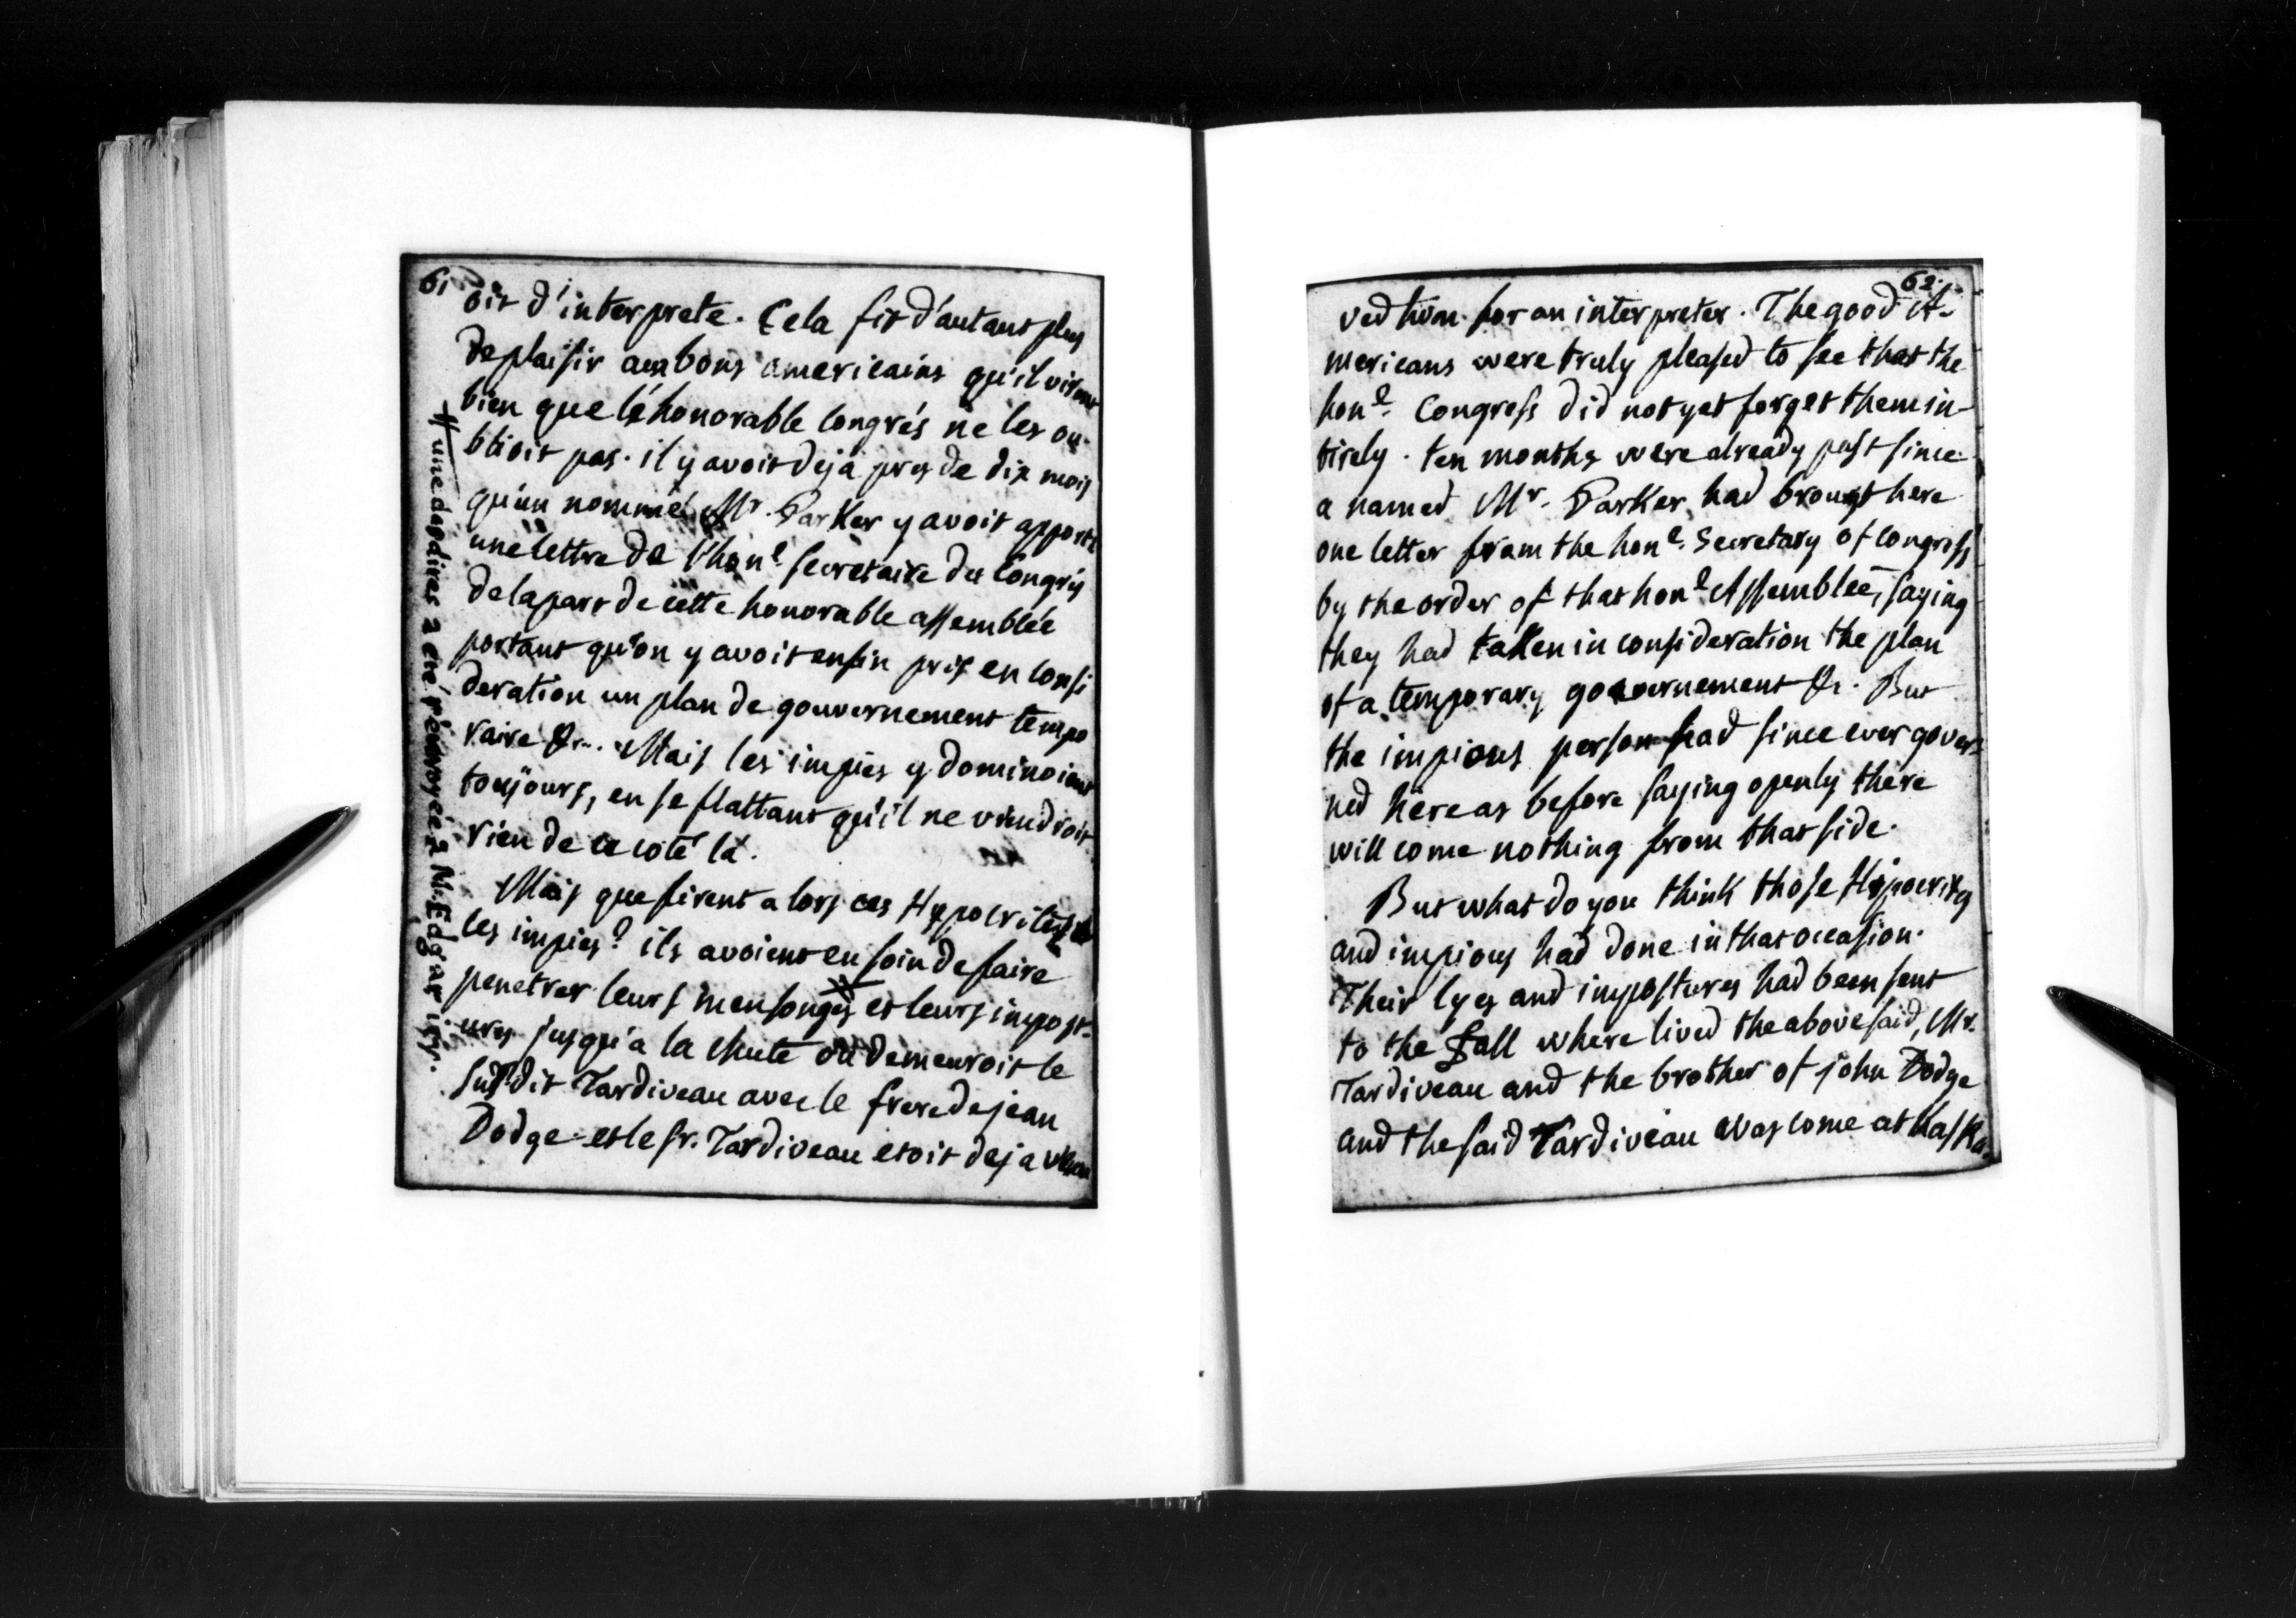 61
oit d'interprete. Cela fit d'autant plus
de plaisir aux bons americains qu'il virent
bien que l'éhonorable Congrés ne les ou-
blioit pas. il y avoit deja pres de dix mois
qu'un nommé Mr. Parker y avoit apporté
une lettre de l'hon.l secretaire du Congrés
de la part de cette honorable assemblée
portant qu'on y avoit enfin pris en consi
deration un plan de gouvernement tempo
raire &c... Mais les impies y dominoient
toujours, en se flattant qu'il ne viendroit
rien de ce coté la.
Mais que firent alors ces Hypocrites
les impies? ils avoient eu soin de faire
penetrer leurs mensonges et leurs impost-
ures jusqu'a la chute où demeuroit le
susdit Tardiveau avec le frere de jean
Dodge et le sr. Tardiveau etoit deja venu
# une des dires a été r'envoyée à M: Edgar icy.
62.
ved him for an interpreter. The good A-
mericans were truly pleased to see that the
hon.l Congress did not yet forget them in-
tirely. ten months were already past since
a named Mr. Parker had brougt here
one letter from the hon.l Secretary of Congress
by the order of that hon.l Assemblée, saying
they had taken in consideration the plan
of a temporary governement &c. But
the impious person had since ever gover-
ned here as before saying openly there
will come nothing from that side.
But what do you think those Hipocrites
and impious had done in that occasion.
Their lyes and impostures had been sent
to the Fall where lived the above said, Mr.
Tardiveau and the brother of john Dodge
and the said Tardiveau was come at Kaska-